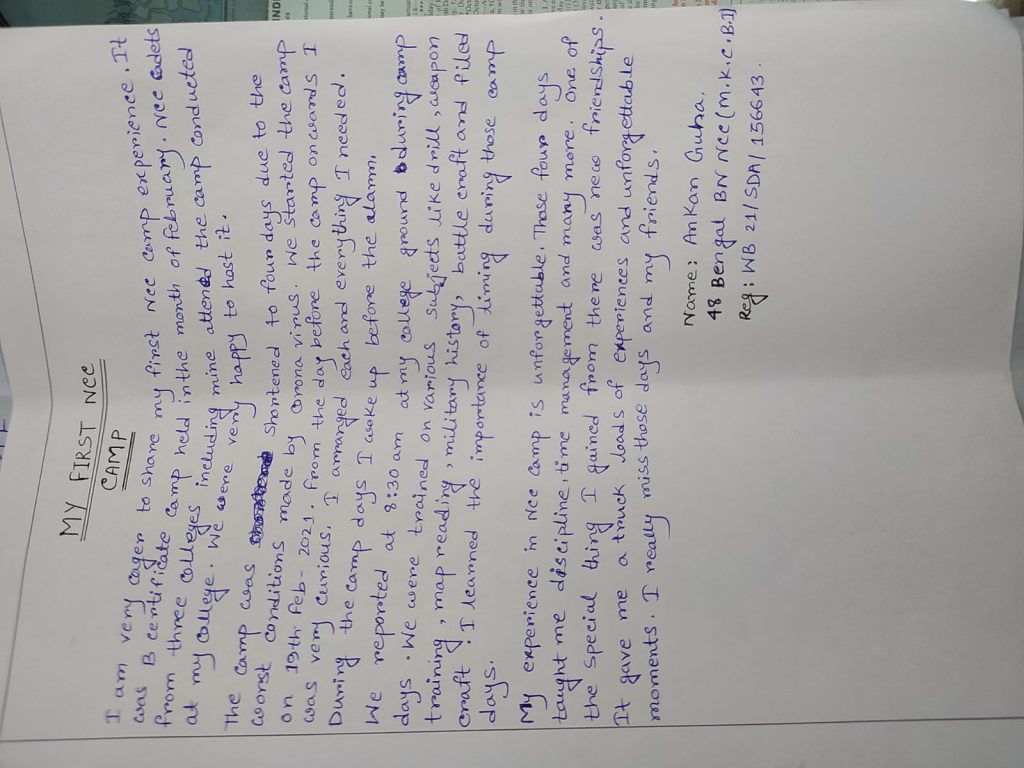 MY FIRST NCC
CAMP
I am very eager to share my first Ncc camp experience. It
was B certificate camp held in the month of february. Ncc cadets
from three colleges including mine attened the camp conducted
at my college. We were very happy to host it.
The camp was shortened to four days due to the
worst conditions made by corona virus. We started the camp
on 19th Feb-2021. From the day before the camp onwards I
was very curious. I arranged each and everything I needed.
During the camp days I woke up before the alarm.
We reported at 8:30 am at my college ground during camp
days. We were trained on various subjects like drill, weapon
training, map reading, military history, battle craft and filed
craft. I learned the importance of timing during those camp
days.
My experience in Ncc camp is unforgettable. Those four days
taught me discipline, time management and many more. One of
the special thing I gained from there was new friendships.
It gave me a truck loads of experiences and unforgettable
moments. I really miss those days and my friends.
Name: Ankan Guha.
48 Bengal BN Ncc (M.K.C.BI)
Reg: WB 21/SDA/156643.